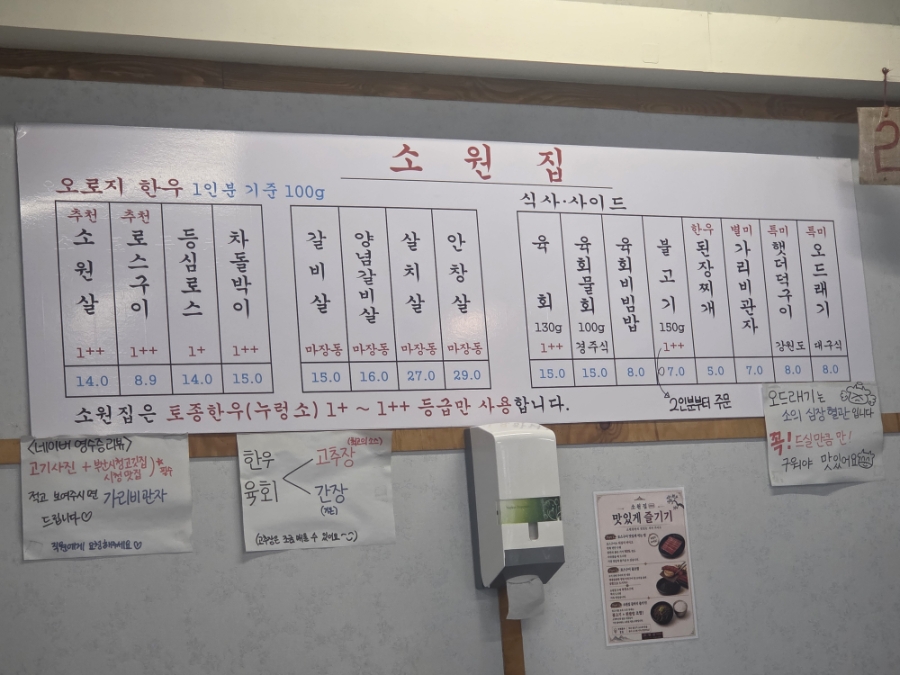 소원집
오로지 한우 1인분 기준 100g
추천 소원살 1++ 14.0
추천 로스구이 1++ 8.9
등심로스 1+ 14.0
차돌박이 1++ 15.0
갈비살 마장동 15.0
양념갈비살 마장동 16.0
살치살 마장동 27.0
안창살 마장동 29.0
식사·사이드
육회 130g 1++ 15.0
육회물회 100g 경주식 15.0
육회비빔밥 8.0
불고기 150g 1++ 7.0
한우 된장찌개 5.0
별미 가리비관자 7.0
특미 햇더덕구이 강원도 8.0
특미 오드래기 대구식 8.0
2인분부터 주문
소원집은 토종한우(누렁소) 1+ ~ 1++ 등급만 사용합니다.
<네이버 영수증리뷰>
고기사진 + 부산시청고깃집
시청맛집
적고 보여주시면 가리비관자
드립니다♡
직원에게 요청해주세요♡
한우 육회
고추장
간장
(고추장은 조금 매울 수 있어요~)
오드래기는
소의 심장 혈관 입니다
꼭! 드실만큼 만!
구워야 맛있어요
2
소원집
맛있게 즐기기